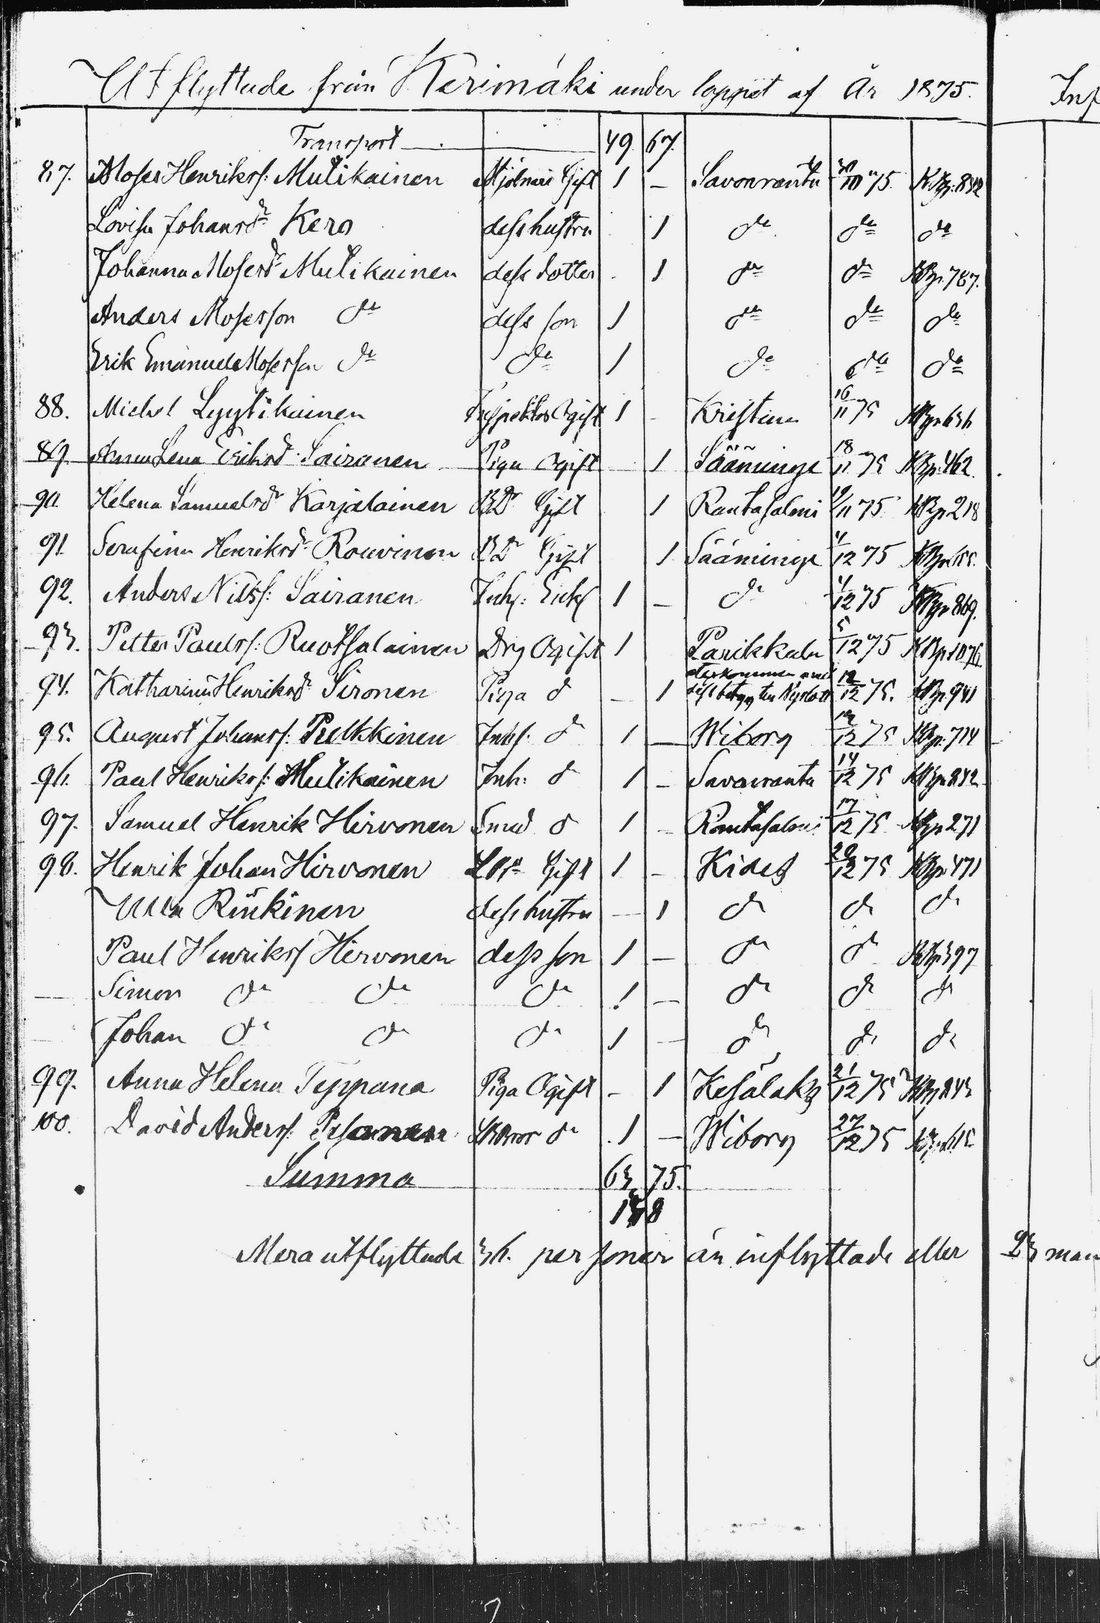 Utflyttade från Kerimäki under loppet af År 1875.
Transport 49. 67.
87. Moses Henrikss: Mutikainen Mjölnare Gift 1 – Savonranta 75. KB.p. 832
Lovisa Johansdr Kero dess hustru 1 do do do
Johanna Mosesdr Mutikainen dess dotter 1 do do KB.p. 787.
Anders Mosesson do dess son 1 do do do
Erik Emanuel Mosesson do do 1 do do do
88. Michel Lyytikainen Ogift 1 Kristina 16/11 75 KB.p. 636
89. Anna Lena Eriksdr Sairanen Piga Ogift 1 Sääminge 18/11 75 KB.p. 462.
90. Helena Samuelsdr Karjalainen BDr Gift 1 Rantasalmi 19/11 75. KB.p. 218
91. Serafina Henriksdr Rouvinen BDr Gift 1 Sääminge 4/12 75 KB.p.
92. Anders Nilss: Sairanen Inh: Enkl 1 – do 4/12 75 KB.p. 869.
93. Petter Paulss: Ruotsalainen Drg Ogift 1 Parikkala 5/12 75 KB.p. 1076.
94. Katharina Henriksdr Sironen Piga do – 1 återkommen med Nyslott 12/12 75. KB.p. 941
95. August Johanss: Pulkkinen Inhs. do 1 – Wiborg 12/12 75 KB.p. 714
96. Paul Henrikss: Mutikainen Inh: do 1 – Savonranta 14/12 75 KB.p. 832
97. Samuel Henrik Hirvonen Smed do 1 – Rantasalmi 17/12 75 KB.p. 271
98. Henrik Johan Hirvonen Gift 1 – Kides 20/12 75 KB.p. 471
Ulla Rinkinen dess hustru – 1 do do do
Paul Henrikss Hirvonen dess son 1 – do do KB.p. 397
Simon do do do 1 – do do do
Johan do do do 1 do do do
99. Anna Helena Teppana Piga Ogift – 1 Kesälaks 21/12 75 KB.p.
100. David Anderss: Pesonen do 1 – Wiborg 27/12 75 KB.p. 615
Summa 63. 75.
138
Mera utflyttade 36. personer än inflyttade eller 23 man